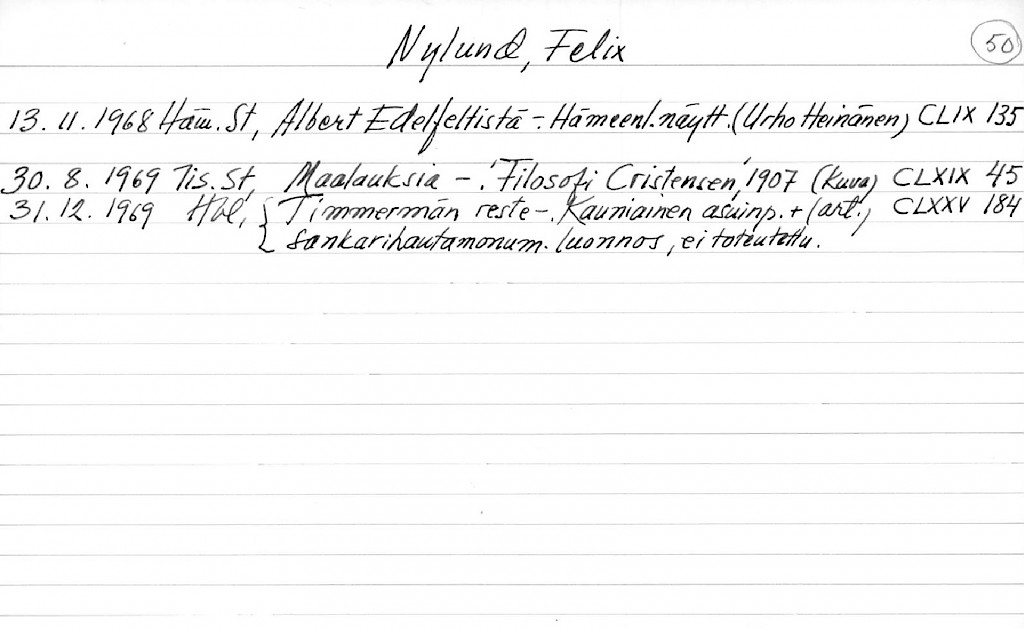 Nylund, Felix
50
13. 11. 1968 Häm. St, Albert Edelfeltistä -. Hämeenl. näytt. (Urho Heinänen) CLIX 135
30. 8. 1969 Tis. St, Maalauksia -. 'Filosofi Cristensen', 1907 (kuva) CLXIX 45
31. 12. 1969 Hbl, Timmermän reste -. Kauniainen asuinp. + (art.) CLXXV 184
Sankarihautamonum. luonnos, ei toteutettu.